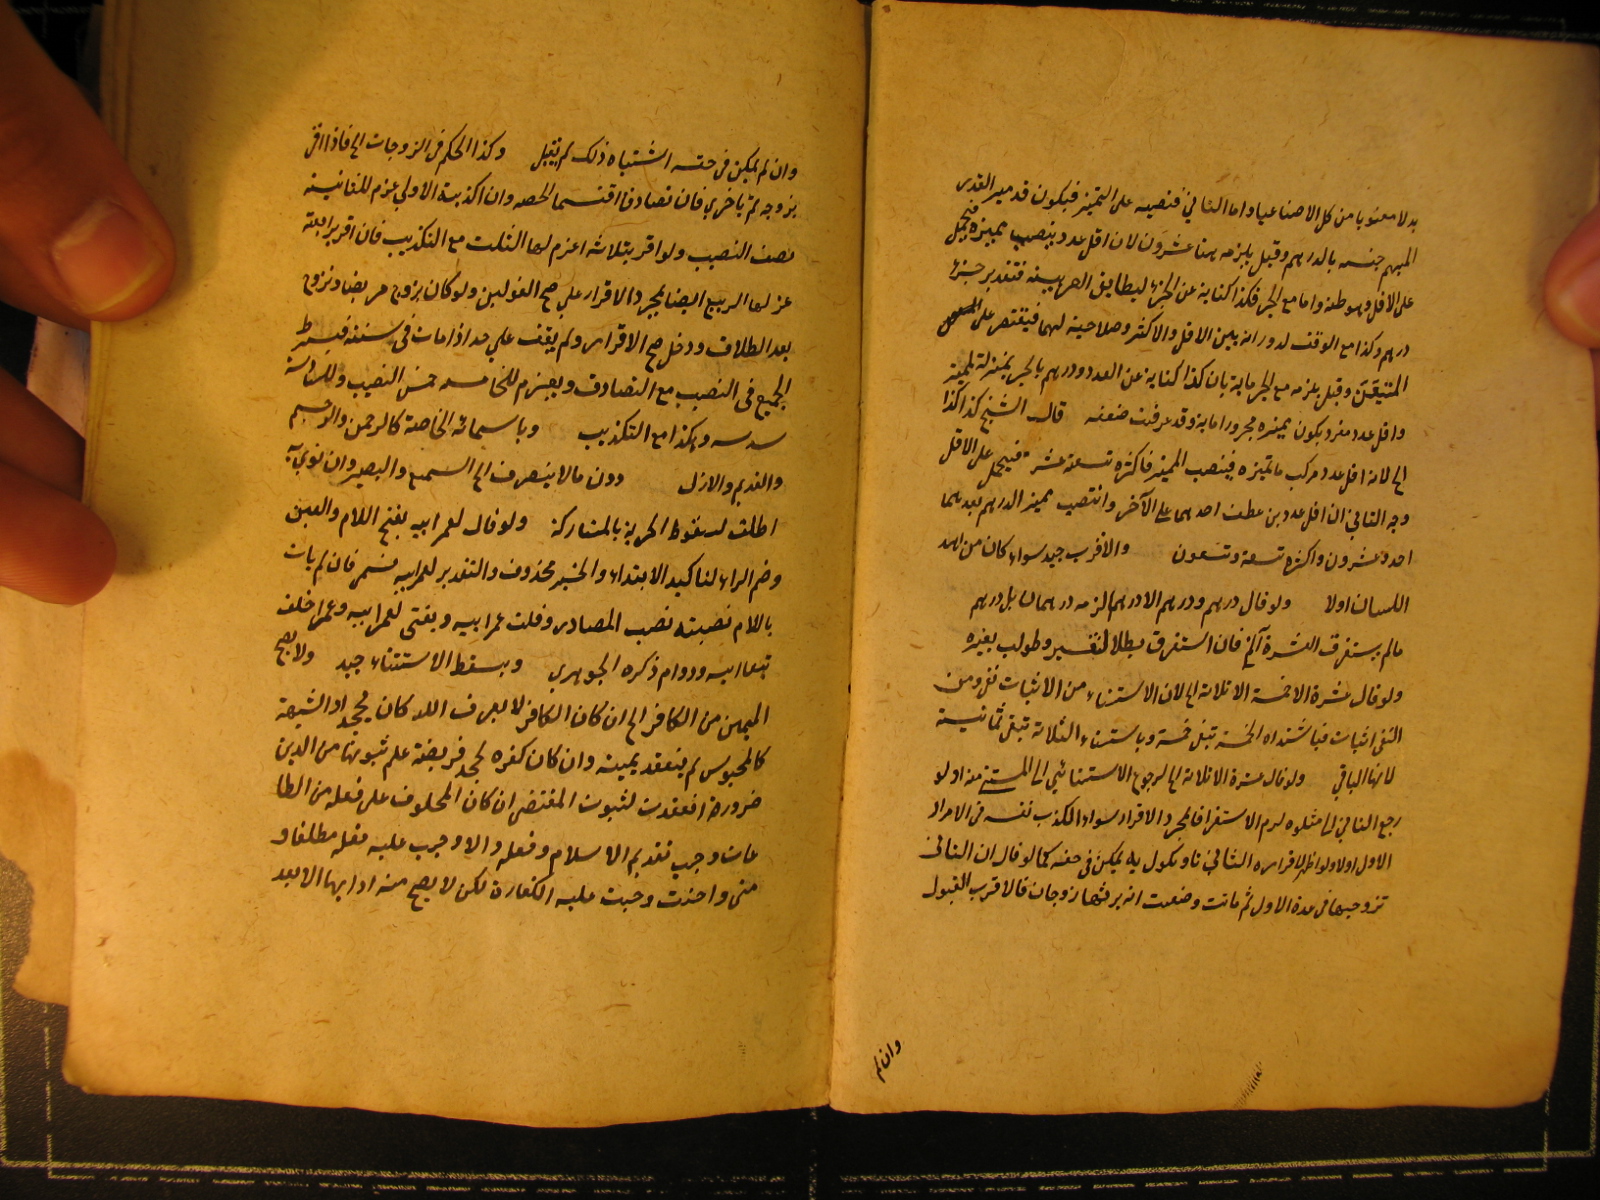 بدلا معنويا من كل الاصناع عيا واما الثاني فنصبه على التميز فيكون قد ميز القدر
المبهم جنسه بالدرهم وقيل يلزمه هنا عشرون لان اقل عدد ينصب مميزه فيحمل
على الاقل وهو طعنه واما مع الجر فكذا كناية عن الجزء ليطابق العربية فتقديره جزء
درهم وكذا مع الوقف لدورانه بين الاقل والاكثر وصلاحيته لهما فيقتصر على
المتيقن وقيل يلزمه مع الجر مائة بان كذا كناية عن العدد ودرهم بالجر بمنزلة المميز
واقل عدد مفرد يكون مميزه مجرورا مائة وقد عرفت ضعفه قال الشيخ كذا كذا
الى لانه اقل عدد مركب مع مميزه فينصب المميز فاكثره تسعة عشر فيحمل على الاقل
وجه الثاني ان اقل عددين عطف احدهما على الآخر وانتصب مميز الدرهم بعدهما
احد وعشرون واكثره تسعة وتسعون والاقرب جيد سواء كان من اهل
اللسان اولا ولو قال درهم ودرهم الا درهم الزمه درهمان بل درهم
مالم يستغرق العشرة الخ فان استغرق بطل التفسير وطولب بغيره
ولو قال عشرة الا خمسة الا ثلاثة الى لان الاستثناء من الاثبات نفي ومن
النفى اثبات فباستثناه الخمسة تبقى خمسة وباستثناء الثلاثة تبقى ثمانية
لانها الباقي ولو قال عشرة الا ثلاثة الى لرجوع الاستثنائين الى المستثنى منه اذ لو
رجع الثاني الى متلوه لزم الاستغراق بمجرد الاقرار سواء الكذب نفسه فى الاقرار
الاول اولا ولو اظهر لاقراره الثاني تاويلا يمكن في حقه كما لو قال ان الثاني
تزوجها فى عدة الاول ثم ماتت وضعت انه يرثها زوجان فالاقرب القبول
وان لم
وان لم يمكن في حقه اشتباه ذلك لم يقبل وكذا الحكم في الزوجات الى فاذا اقر
بزوجه ثم باخرى فان تصادقا اقتسما الحصه وان اكذبته الاولى غرم للثانية
نصف النصيب ولو اقر بثلاثة اغرم لها الثلث مع التكذيب فان اقر برابعة
غرم لها الربع ايضا بمجرد الاقرار على اصح القولين ولو كان بزوج مريضا وتزوج
بعد الطلاق ودخل صح الاقرار ولم يقف على حد اذا مات في سنته فيسترط
الجميع فى النصيب مع التصادق ويغرم للخامسه خمس النصيب وللسادسة
سدسه وهكذا مع التكذيب وباسمائه الخاصة كالرحمن والرحيم
والقديم والازل دون مالا ينصرف الى السميع والبصير وان نوى به
اطلق لسقوط الحرية بالمشاركة ولو قال لعمر ابيه بفتح اللام والعين
وضم الراء لتاكيد الابتداء والخبر محذوف والتقدير لعمرابيه قسمى فان لم يات
باللام نصبته نصب المصادر وقلت عمر ابيه وبفتى لعمر ابيه وعمر خلف
تبعا ابيه ودوام ذكره الجوهري ويسقط الاستثناء جيد ولا يصح
اليمين من الكافر الى ان كان الكافر لا يعرف الله كان يجحد او الشبهة
كالمجوس لم ينعقد يمينه وان كان كفره بجحد فريضة علم ثبوتها من الدين
ضرورة انعقدت لثبوت المقتضى ان كان المحلوف على فعله من الطا
عات وجب تقديم الاسلام وفعله والا وجب عليه فعله مطلقا و
متى واحنث وجبت عليه الكفارة لكن لا يصح منه ادايها الا بعد